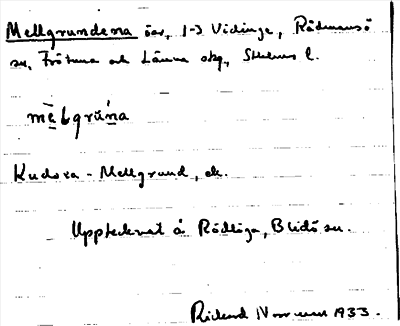 Mellgrundena öar, 1-3 Vidinge, Rådmansö
sn, Frötuna och Länna skg, Sthlms l.
Kudoxa - Mellgrund, ek.
Upptecknat å Rödlöga, Blidö sn.
Rickard 1933.